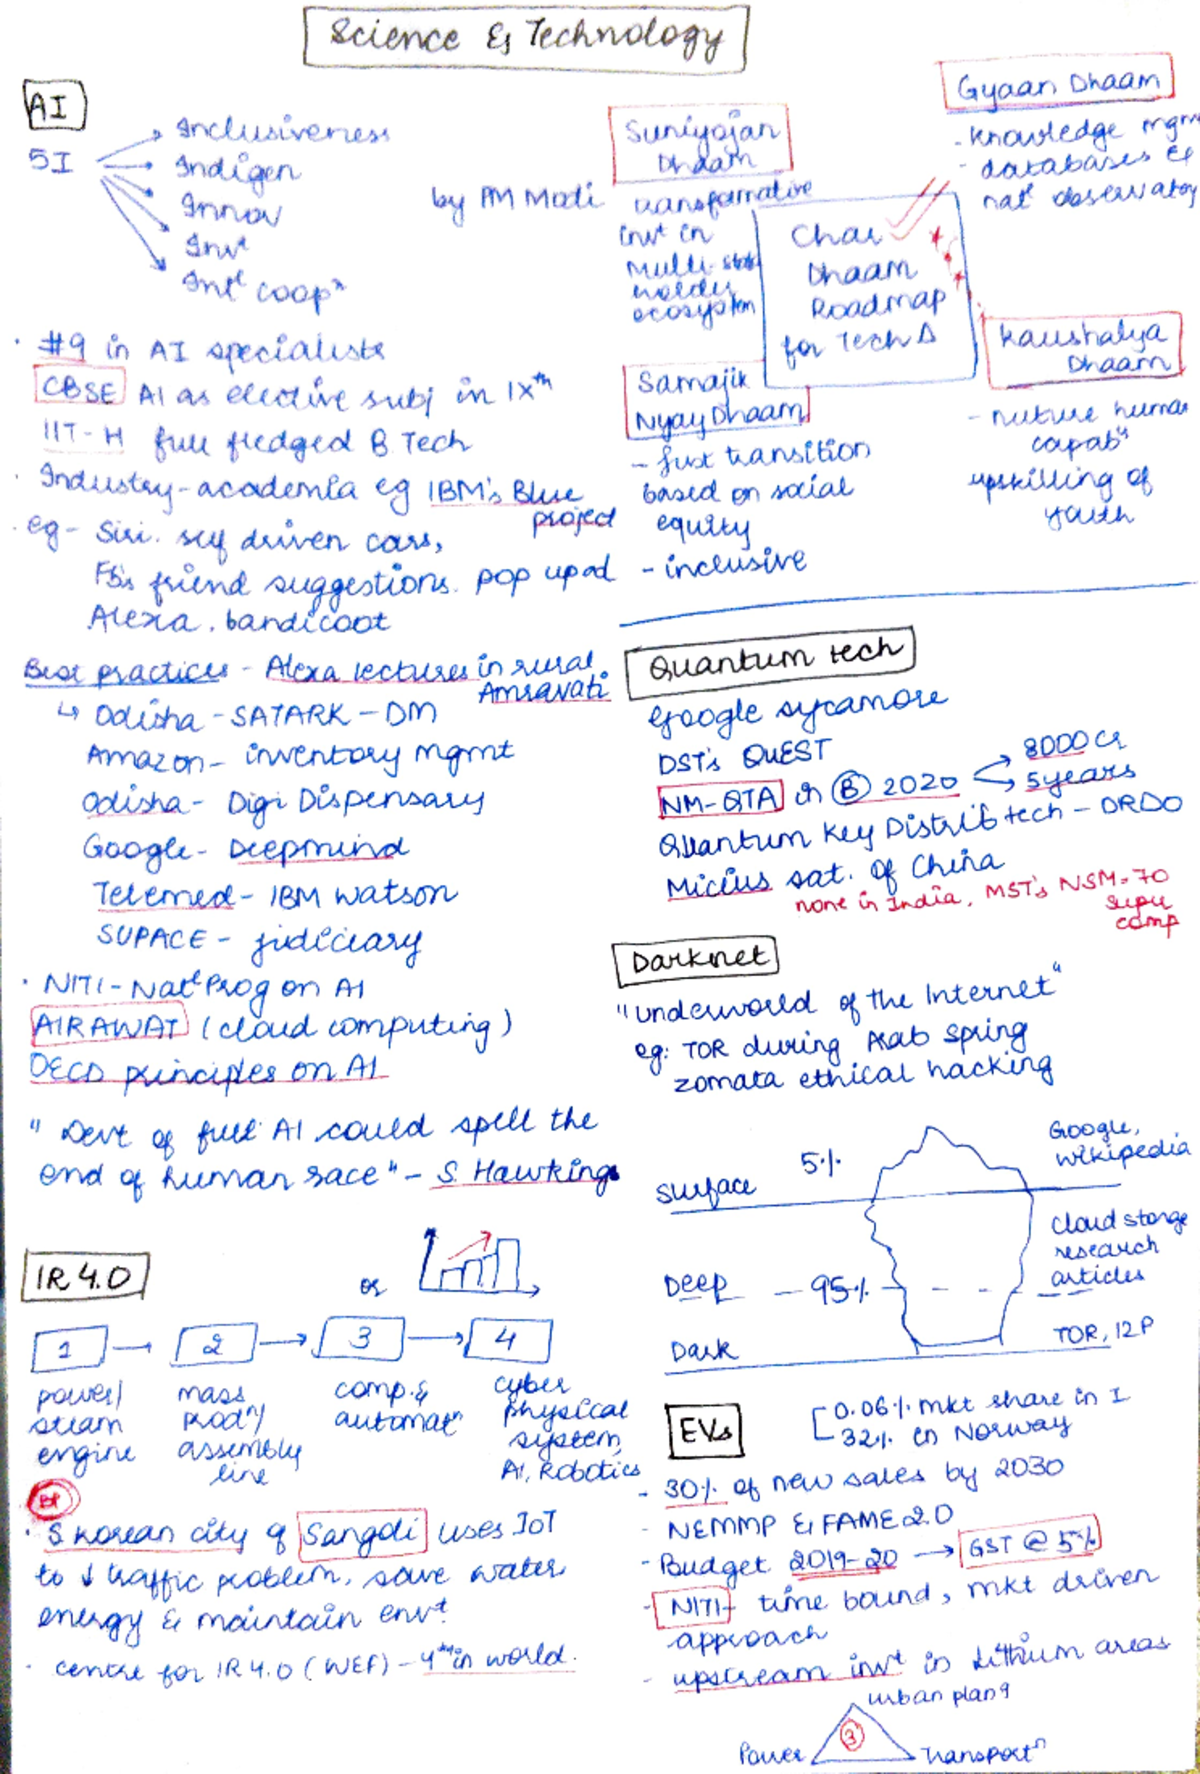 Science & Technology
AI
5I
Inclusiveness
Indigen
Innov
Invt
Intl coopn
by PM Modi
#9 in AI specialists
CBSE AI as elective subj in IXth
IIT-H full fledged B.Tech
Industry-academia eg IBM's Blue
project
eg- Siri, self driven cars,
FB's friend suggestions, pop up ad
Alexa, bandicoot
Best practices - Alexa lectures in rural
Amravati
↳ Odisha - SATARK - DM
Amazon - inventory mgmt
Odisha - Digi Dispensary
Google - Deepmind
Telemed - IBM Watson
SUPACE - judiciary
NITI - Natl Prog on AI
AIRAWAT (cloud computing)
OECD principles on AI
"Devt of full AI could spell the
end of human race" - S. Hawking
IR 4.0
or
1 → 2 → 3 → 4
power/
steam
engine
mass
prodn/
assembly
line
comp. &
automatn
cyber
physical
system,
AI, Robotics
BP
S Korean city of Sangdi uses IoT
to ↓ traffic problem, save water
energy & maintain envt.
centre for IR 4.0 (WEF) - 4th in world.
Suniyojan
Dhaam
transformative
invt in
multi-stake
holder
ecosystem
Gyaan Dhaam
- knowledge mgm
- databases &
natl observatory
Char
Dhaam
Roadmap
for Tech Δ
Samajik
Nyay Dhaam
- just transition
based on social
equity
- inclusive
Kaushalya
Dhaam
- nuture human
capabs
upskilling of
youth
Quantum tech
Google sycamore
DST's QuEST
NM-QTA in B 2020
8000 Cr
5 years
Quantum Key Distrib tech - DRDO
Micius sat. of China
none in India, MST's NSM-70
super
comp
Darknet
"underworld of the Internet"
eg: TOR during Arab spring
zomata ethical hacking
Surface
5%
Google,
wikipedia
Deep - 95%
cloud storge
research
articles
Dark
TOR, I2P
EVs
0.06% mkt share in I
32% in Norway
- 30% of new sales by 2030
- NEMMP & FAME 2.0
- Budget 2019-20 → GST @ 5%
- NITI- time bound, mkt driven
approach
- upstream invt in Lithium areas
urban plang
3
Power
Transportn